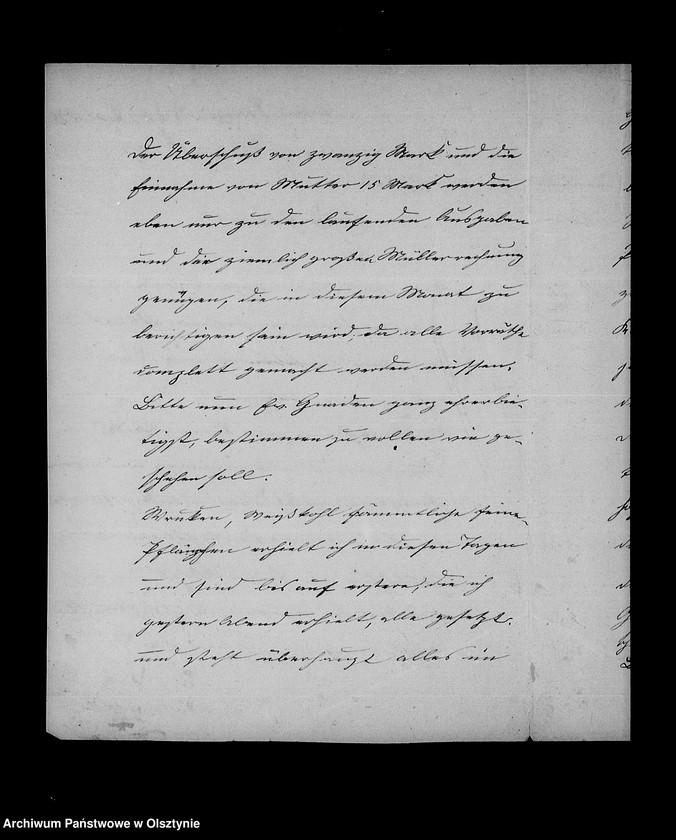 Der Überschuß von zwanzig Mark und die
Einnahme von Mutter 15 Mark werden
eben nur zu den laufenden Ausgaben
und der ziemlich großen Müllerrechnung
genügen, die in diesem Monat zu
berichtigen sein wird, da alle Vorräthe
complett gemacht werden müssen.
Bitte nun Ew. Gnaden ganz ehrerbie-
tigst, bestimmen zu wollen wie ge-
schehen soll.
Wruken, Weißkohl sämmtliche feine
Pflanzen erhielt ich in diesen Tagen
und sind bis auf erstere, die ich
gestern Abend erhielt, alle gesetzt.
und steht überhaupt alles im
Archiwum Państwowe w Olsztynie